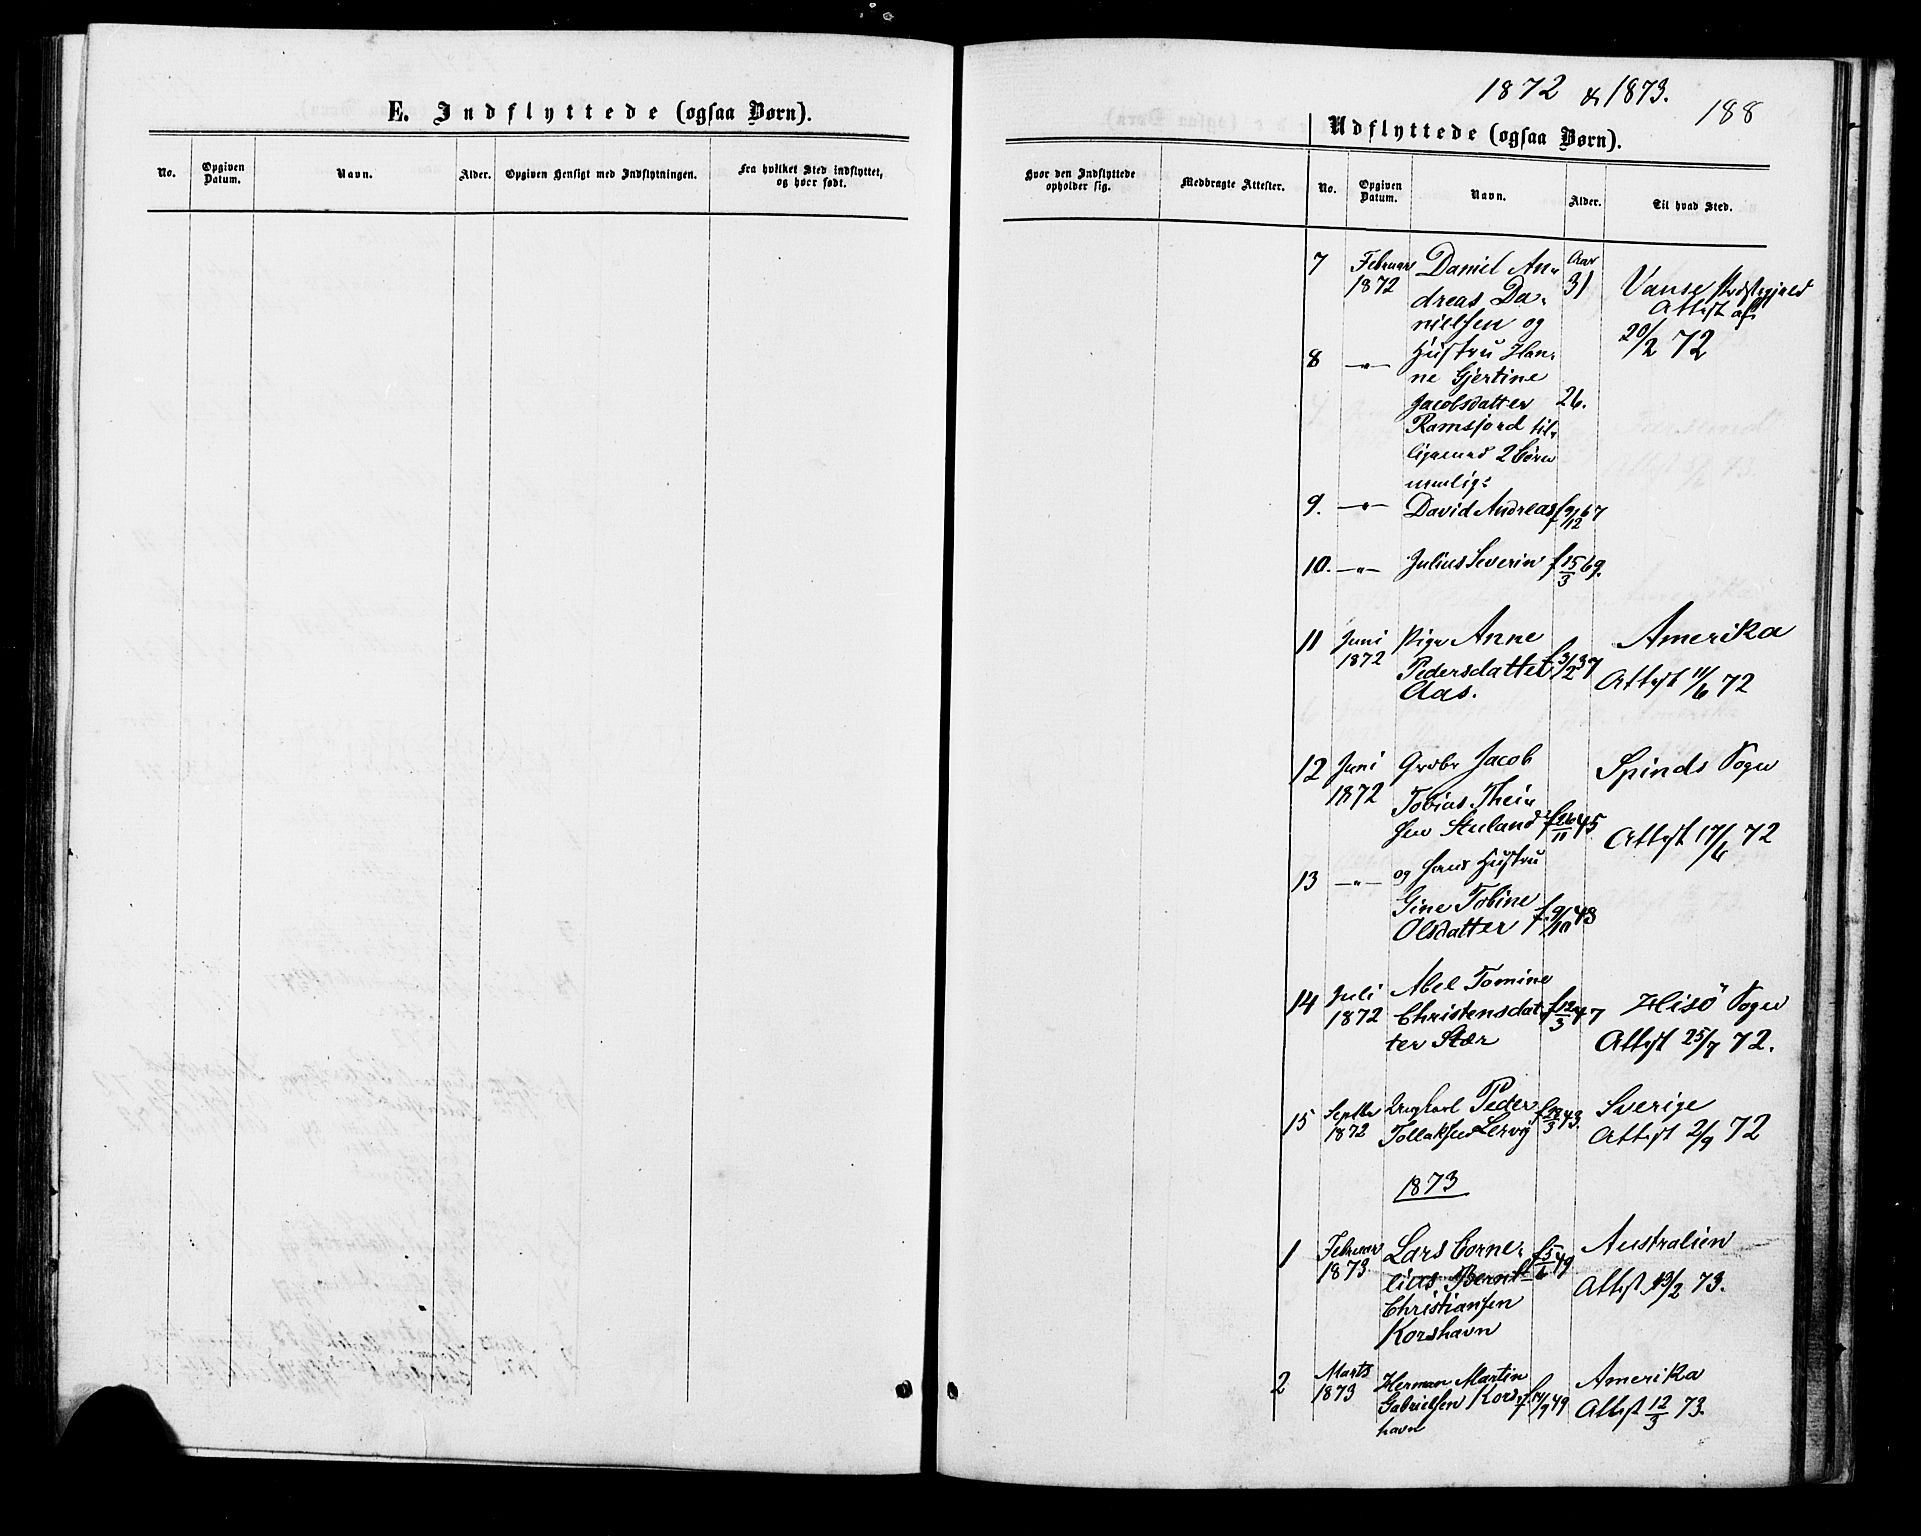 E. Indflyttede (ogsaa Børn).
No.
Opgiven Datum.
Navn.
Alder.
Opgiven Hensigt med Indflytningen.
Fra hvilket Sted indflyttet, og hvor født.
1872 & 1873.
188
Udflyttede (ogsaa Børn).
Hvor den Indflyttede opholder sig.
Medbragte Attester.
No.
Opgiven Datum.
Navn.
Alder.
Til hvad Sted.
7 Februar Daniel An- Aar
1872 dreas Da- 31 Vanse Præstegjeld
nielsen og Attest af
8 -"- Hustru Han- 20/2 72
ne Gjertine
Jacobsdatter 26.
Ramsfjord til-
ligemed 2 børn
nemlig:
9. -"- David Andreas f 9/12 67
10. -"- Julius Severin f 15/3 69.
11 Juni Pige Anne Amerika
1872 Pedersdatter f 3/2 37 Attest 11/6 72
Aas.
12 Juni Grdbr Jacob Spinds Sogn
1872 Tobias Thei-
sen Stuland f 26/11 45. Attest 17/6 72
13 -"- og hans Hustru
Gine Tobine
Olsdatter f 9/10 43
14 Juli Abel Tomine Hisö Sogn
1872 Christensdat- f 12/3 47
ter Stær Attest 25/7 72.
15 Septbr Ungkarl Peder 43. Sverige
1872 Tollaksen Lervig Attest 2/9 72
1873
1 Februar Lars Corne- f 5/6 49 Australien
1873. lius Bernt Attest 13/2 73.
Christiansen
Korshavn
2 Marts Herman Martin Amerika
1873 Gabrielsen Kors- f 14/9 49 Attest 12/3 73.
havn